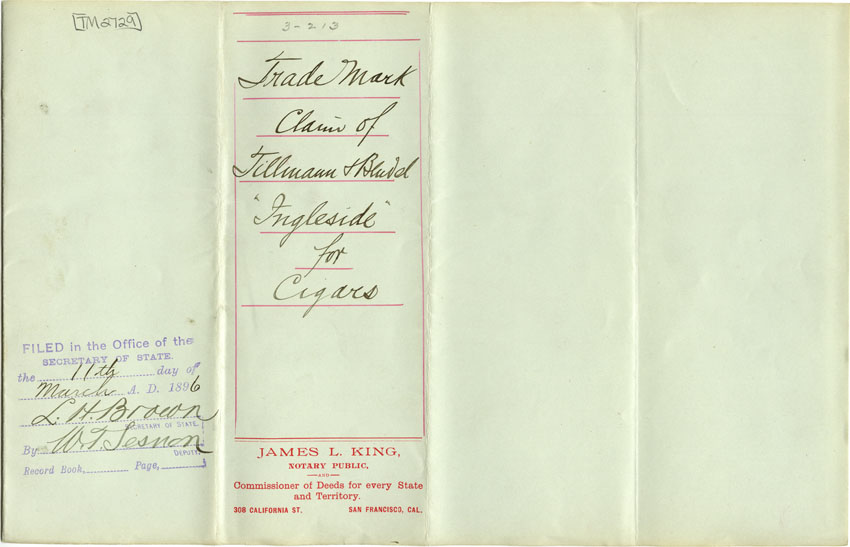 [TM2729]
FILED in the Office of the
SECRETARY OF STATE.
the 11th day of
March A. D. 1896
L. H. Brown
SECRETARY OF STATE.
By W. T. Sesnon
DEPUTY.
Record Book, Page,
3-213
Trade Mark
Claim of
Tillmann & Bendel
"Ingleside"
for
Cigars
JAMES L. KING,
NOTARY PUBLIC,
AND
Commissioner of Deeds for every State
and Territory.
308 CALIFORNIA ST. SAN FRANCISCO, CAL.